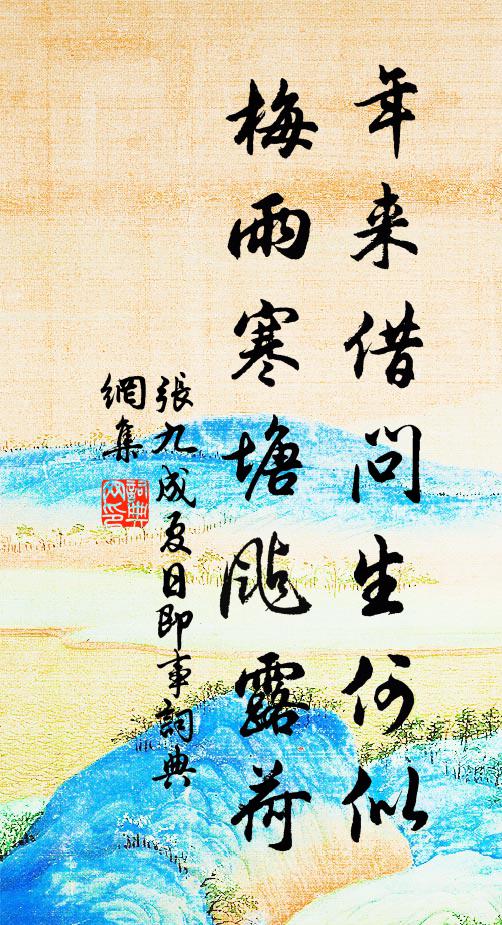 年来借问生何似
梅雨寒塘飐露荷
張九成夏日即事詞典
網集